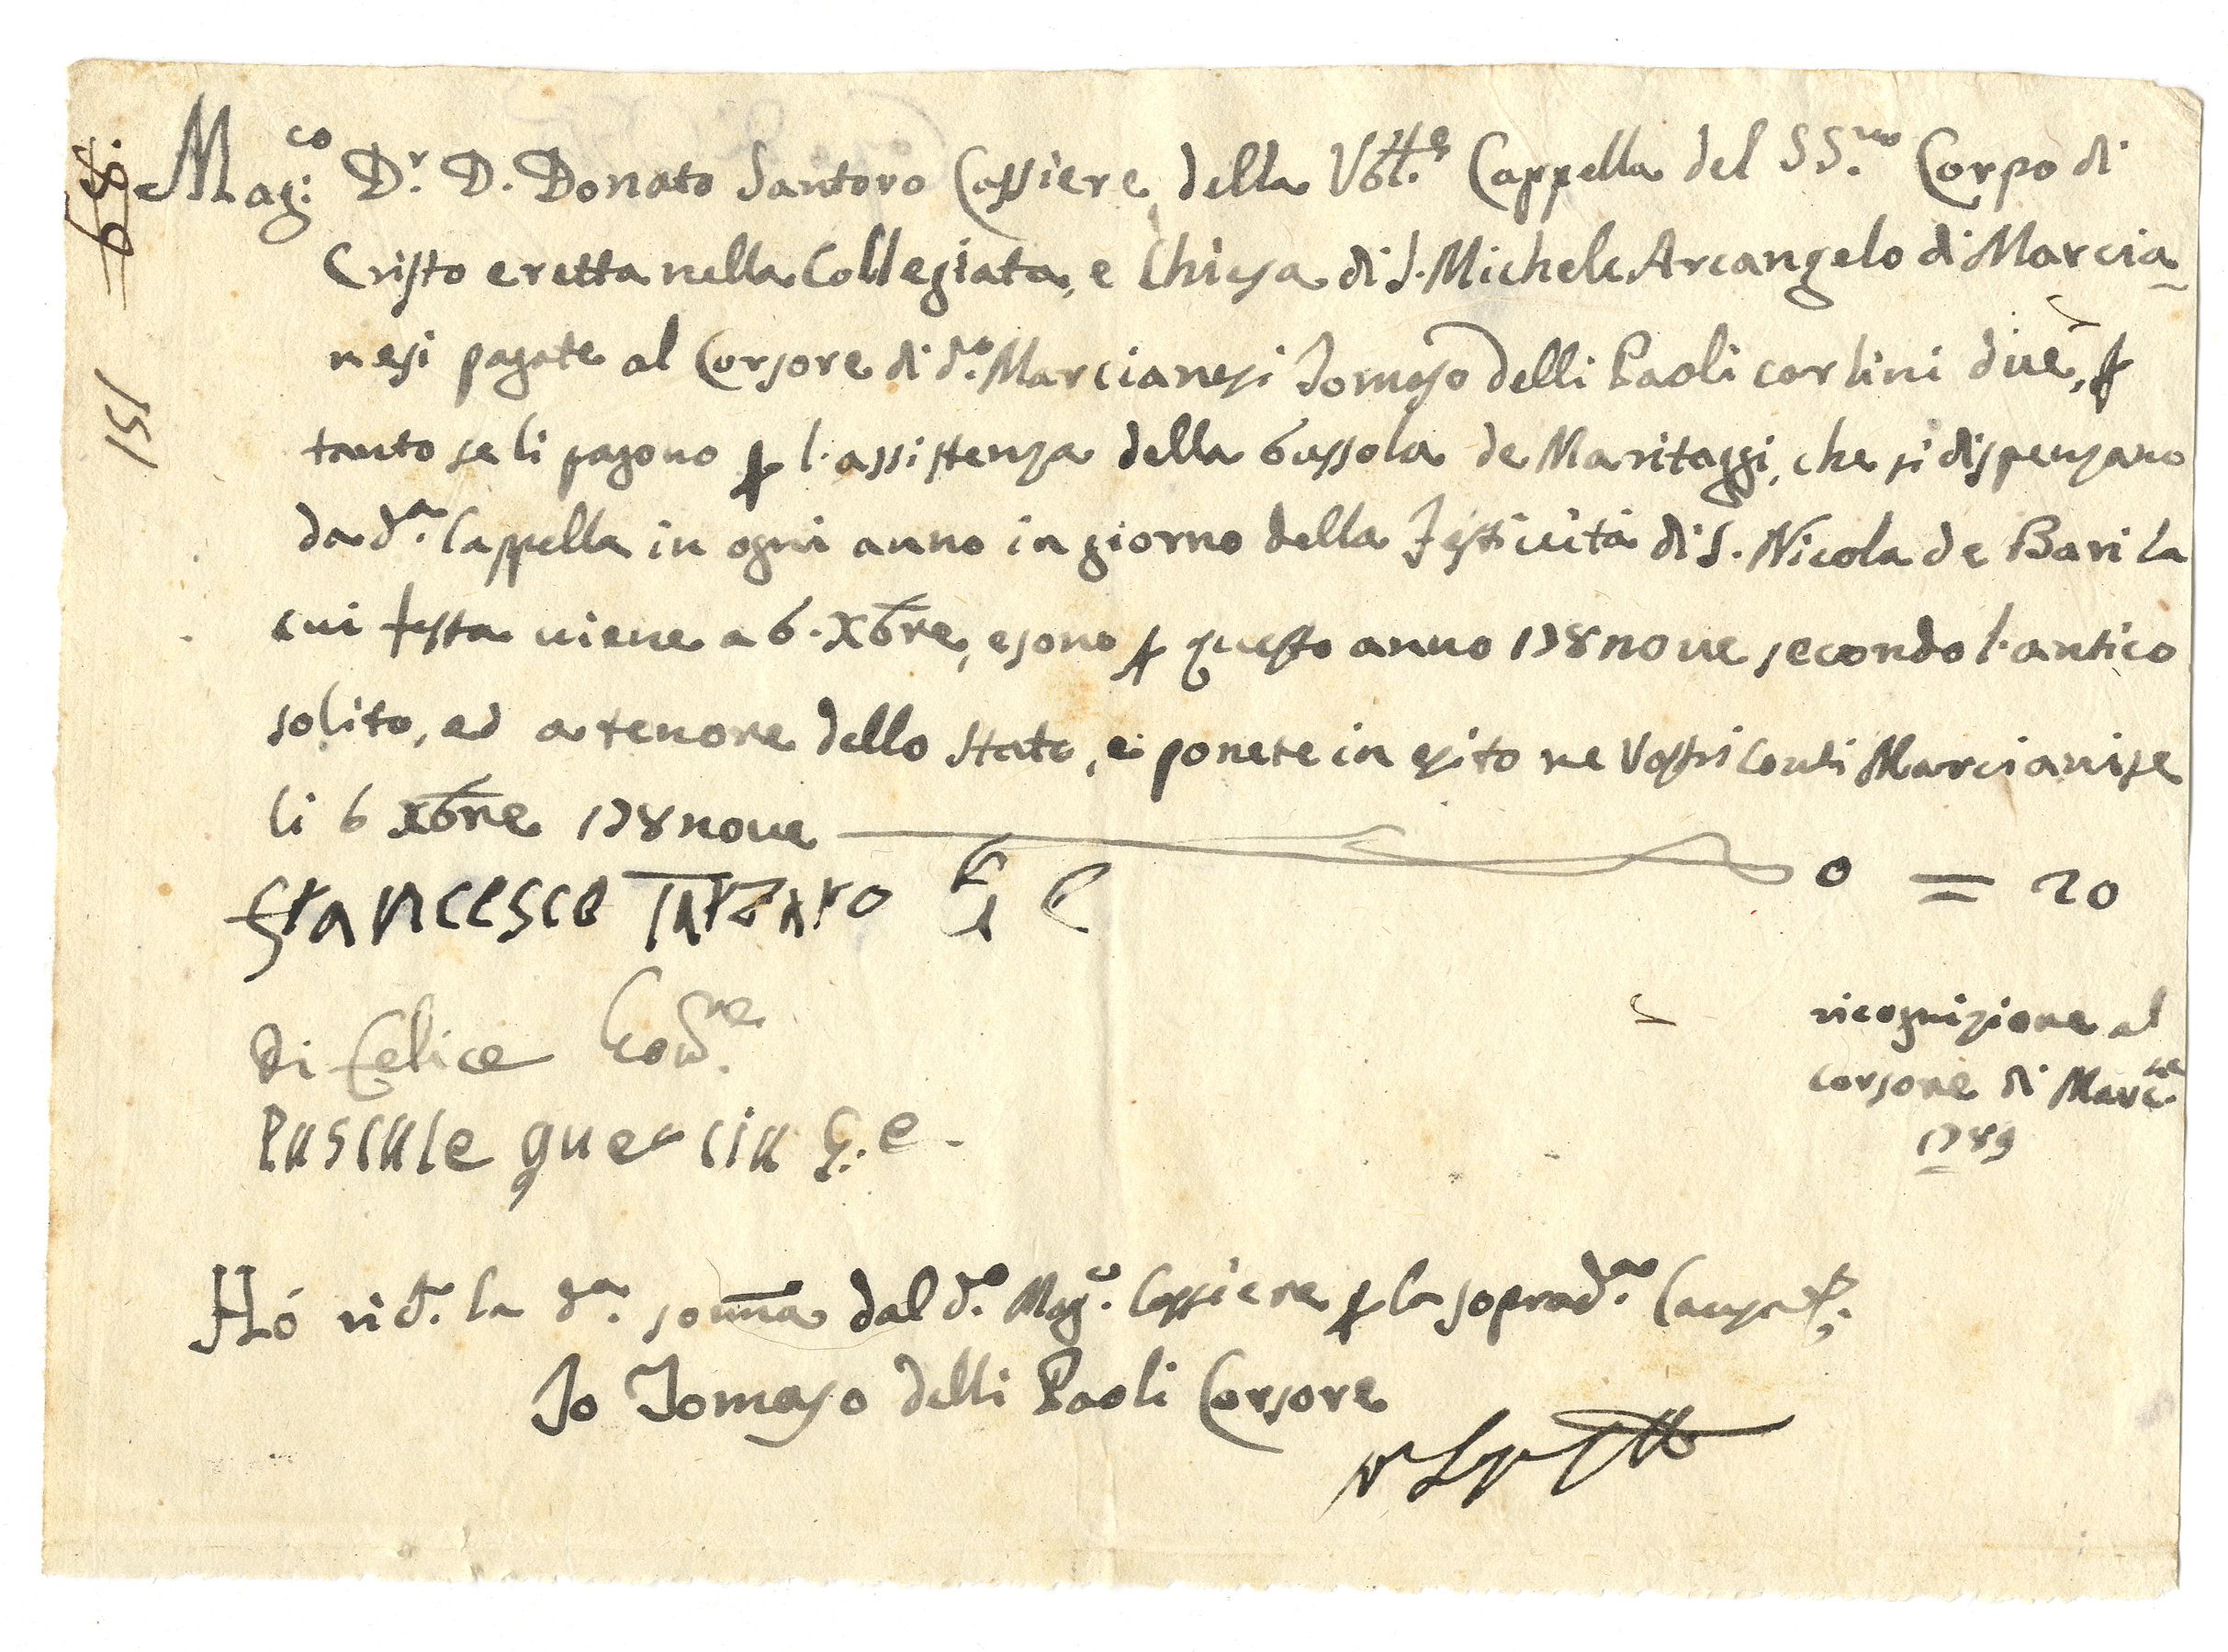 Mag:co Dr. D. Donato Santoro Cassiere della Vble. Cappella del SS.mo Corpo di
Cristo eretta nella Collegiata, e Chiesa di S. Michele Arcangelo di Marcia-
nesi pagate al Corsore di do. Marcianesi Tomaso delli Paoli carlini due, p
tanto se li pagono p l'assistenza della bussola de Maritaggi, che si dispenzano
da da. Cappella in ogni anno in giorno della Festività di S. Nicola de Bari la
cui festa viene a 6. Xbre, e sono p questo anno 178nove secondo l'antico
solito, ed a tenore dello stato, e ponete in esito ne Vostri Conti Marcianise
li 6 Xbre 178nove
0 = 20
Francesco Tartaro E C
di Felice
Pascale quercia e.
ricognizione al
corsore di Marc.se
1789
Hó rid. la da. somma dal do. Mag.co Cassiere p la soprada. Causa
Io Tomaso delli Paoli Corsore
68.
151